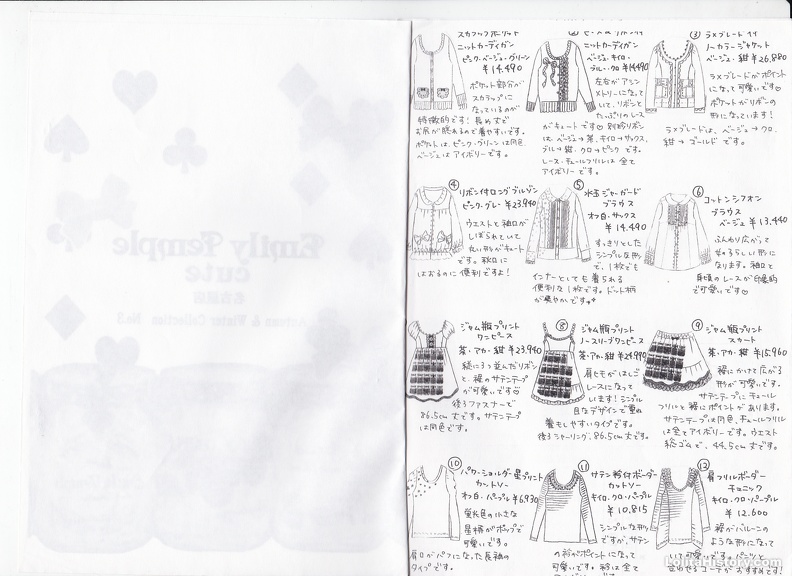 Emily Temple
cute
名古屋店
Autumn & Winter Collection No.3
スカラップポケット
ニットカーディガン
ピンク・ベージュ・グリーン
¥14,490
ポケット部分が
スカラップに
なっているのが
特徴的です!長め丈で
お尻が隠れるので着やすいです。
ポケットは、ピンク・グリーンは同色
ベージュはアイボリーです。
②
ニットカーディガン
ベージュ・キイロ・
ブルー・クロ ¥14,490
左右がアシン
メトリーになって
いて、リボンと
たっぷりのレース
がキュートです♡ 別珍リボン
は、ベージュ→茶、キイロ→サックス、
ブルー→紺、クロ→ピンク です。
レース・チュールフリルは全て
アイボリーです。
③ ラメブレード付
ノーカラージャケット
ベージュ・紺 ¥26,880
ラメブレードがポイント
になって可愛いです♡
ポケットがリボンの
形になっています!
ラメブレードは、ベージュ→クロ、
紺→ゴールド です。
④ リボン付ロングブルゾン
ピンク・グレー ¥23,940
ウエストと袖口が
しぼられていて
丸い形がキュート
です。秋口に
はおるのに便利ですよ!
⑤ 水玉ジャガード
ブラウス
オフ白・サックス
¥14,490
すっきりとした
シンプルな形
で、1枚でも
インナーとしても着られる
便利な1枚です。ドット柄
が爽やかです。
⑥ コットンシフォン
ブラウス
ベージュ ¥13,440
ふんわり広がって
女のコらしい形に
なります。袖口と
身頃のレースが印象的
で可愛いです♡
⑦ ジャム瓶プリント
ワンピース
茶・アカ・紺 ¥23,940
縦に3つ並んだリボン
と、裾のサテンテープ
が可愛いです♡
後ろファスナーで
86.5cm丈です。サテンテープ
は同色です。
⑧ ジャム瓶プリント
ノースリーブワンピース
茶・アカ・紺
肩ヒモがはしご
レースになって
います!シンプル
なデザインで重ね
着もしやすいタイプです。
後ろシャーリング、86.5cm丈です。
⑨ ジャム瓶プリント
スカート
茶・アカ・紺 ¥15,960
裾にかけて広がる
形が可愛いです。
サテンテープにチュール
フリルと裾にポイントがあります。
サテンテープは同色、チュールフリル
は全てアイボリーです。ウエスト
総ゴムで、44.5cm丈です。
⑩ パフショルダー星プリント
カットソー
オフ白・パープル ¥6930
蛍光色の小さな
星柄がポップで
可愛いです。
肩口がパフになった長袖の
タイプです。
⑪ サテン衿付ボーダー
カットソー
キイロ・クロ・パープル
¥10,815
シンプルな形
ですが、サテン
の衿がポイントになって
可愛いです。衿は全て
⑫ 肩フリルボーダー
チュニック
キイロ・クロ・パープル
¥12,600
裾がバルーンの
ような形になって
いて可愛いです。パンツと
合わせるコーデがおすすめです!
LolitaHistory.com